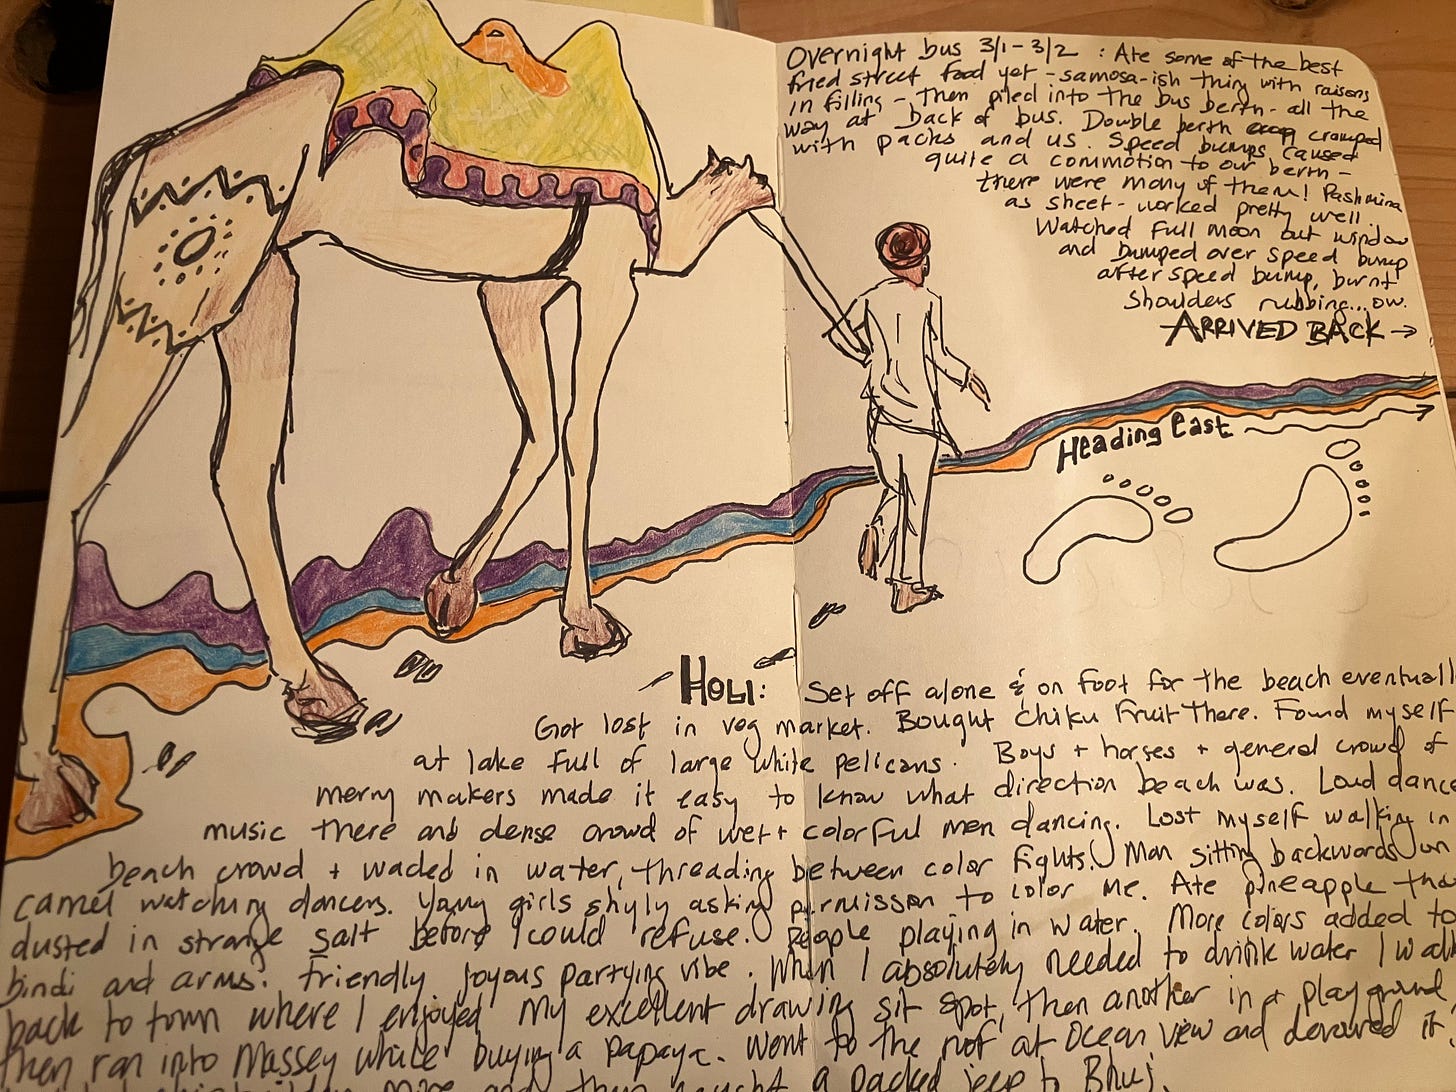 Overnight bus 3/1 - 3/2 : Ate some of the best
fried street food yet - samosa-ish thing with raisens
in filling - Then piled into the bus berth - all the
way at back of bus. Double berth cramped
with packs and us. Speed bumps caused
quite a commotion to our berth -
there were many of them! Pashmina
as sheet - worked pretty well.
Watched full moon out window
and bumped over speed bump
after speed bump, burnt
shoulders rubbing... ow.
ARRIVED BACK →
Heading East
HOLI: Set off alone & on foot for the beach eventuall
Got lost in veg market. Bought chiku fruit There. Found myself
at lake full of large white pelicans. Boys + horses + general crowd of
merry makers made it easy to know what direction beach was. Loud dance
music there and dense crowd of wet + colorful men dancing. Lost myself walking in
beach crowd + waded in water, threading between color fights. Man sitting backwards on
camel watching dancers. Young girls shyly asking permission to color me. Ate pineapple tha
dusted in strange salt before I could refuse. People playing in water. More colors added to
bindi and arms. Friendly joyous partying vibe. When I absolutely needed to drink water I walk
back to town where I enjoyed my excellent drawing sit spot, then another in a playground
Then ran into Massey while buying a papaya. Went to the roof at Ocean View and devoured it.
more and then caught a packed jeep to Bhuj.